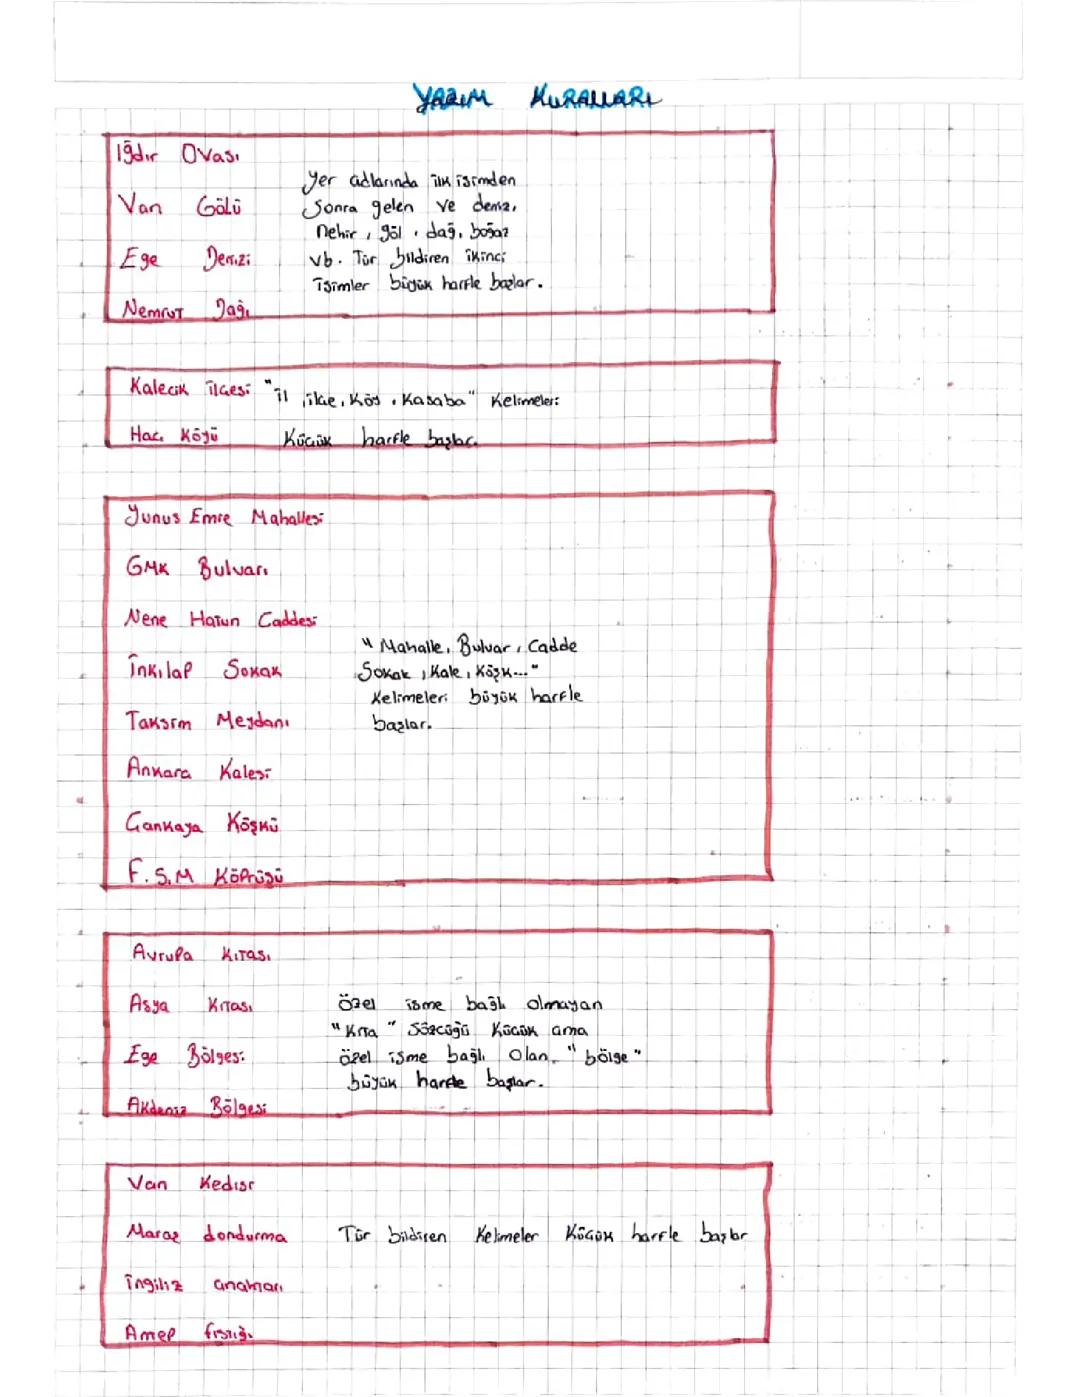 YAZIM KURALLARI
Iğdır Ovası
Van Gölü
Ege Denizi
Nemrut Dağı
Yer adlarında ilk isimden
sonra gelen ve deniz,
nehir, göl, dağ, boğaz
vb. Tür bildiren ikinci
isimler büyük harfle başlar.
Kalecik ilçesi
Hacı Köyü
"il, ilçe, Köy, Kasaba" Kelimeleri
Küçük harfle başlar.
Yunus Emre Mahallesi
GMK Bulvarı
Nene Hatun Caddesi
İnkılap Sokak
Taksim Meydanı
Ankara Kalesi
Çankaya Köşkü
F.S.M Köprüsü
"Mahalle, Bulvar, Cadde
Sokak, Kale, Köşk..."
Kelimeleri büyük harfle
başlar.
Avrupa Kıtası
Asya Kıtası
Ege Bölgesi
Akdeniz Bölgesi
özel isme bağlı olmayan
"Kıta" Sözcüğü Küçük ama
özel isme bağlı olan "bölge"
büyük harfle başlar.
Van Kedisi
Maraş dondurma
İngiliz anahtarı
Amep fıstığı
Tür bildiren Kelimeler Küçük harfle başlar